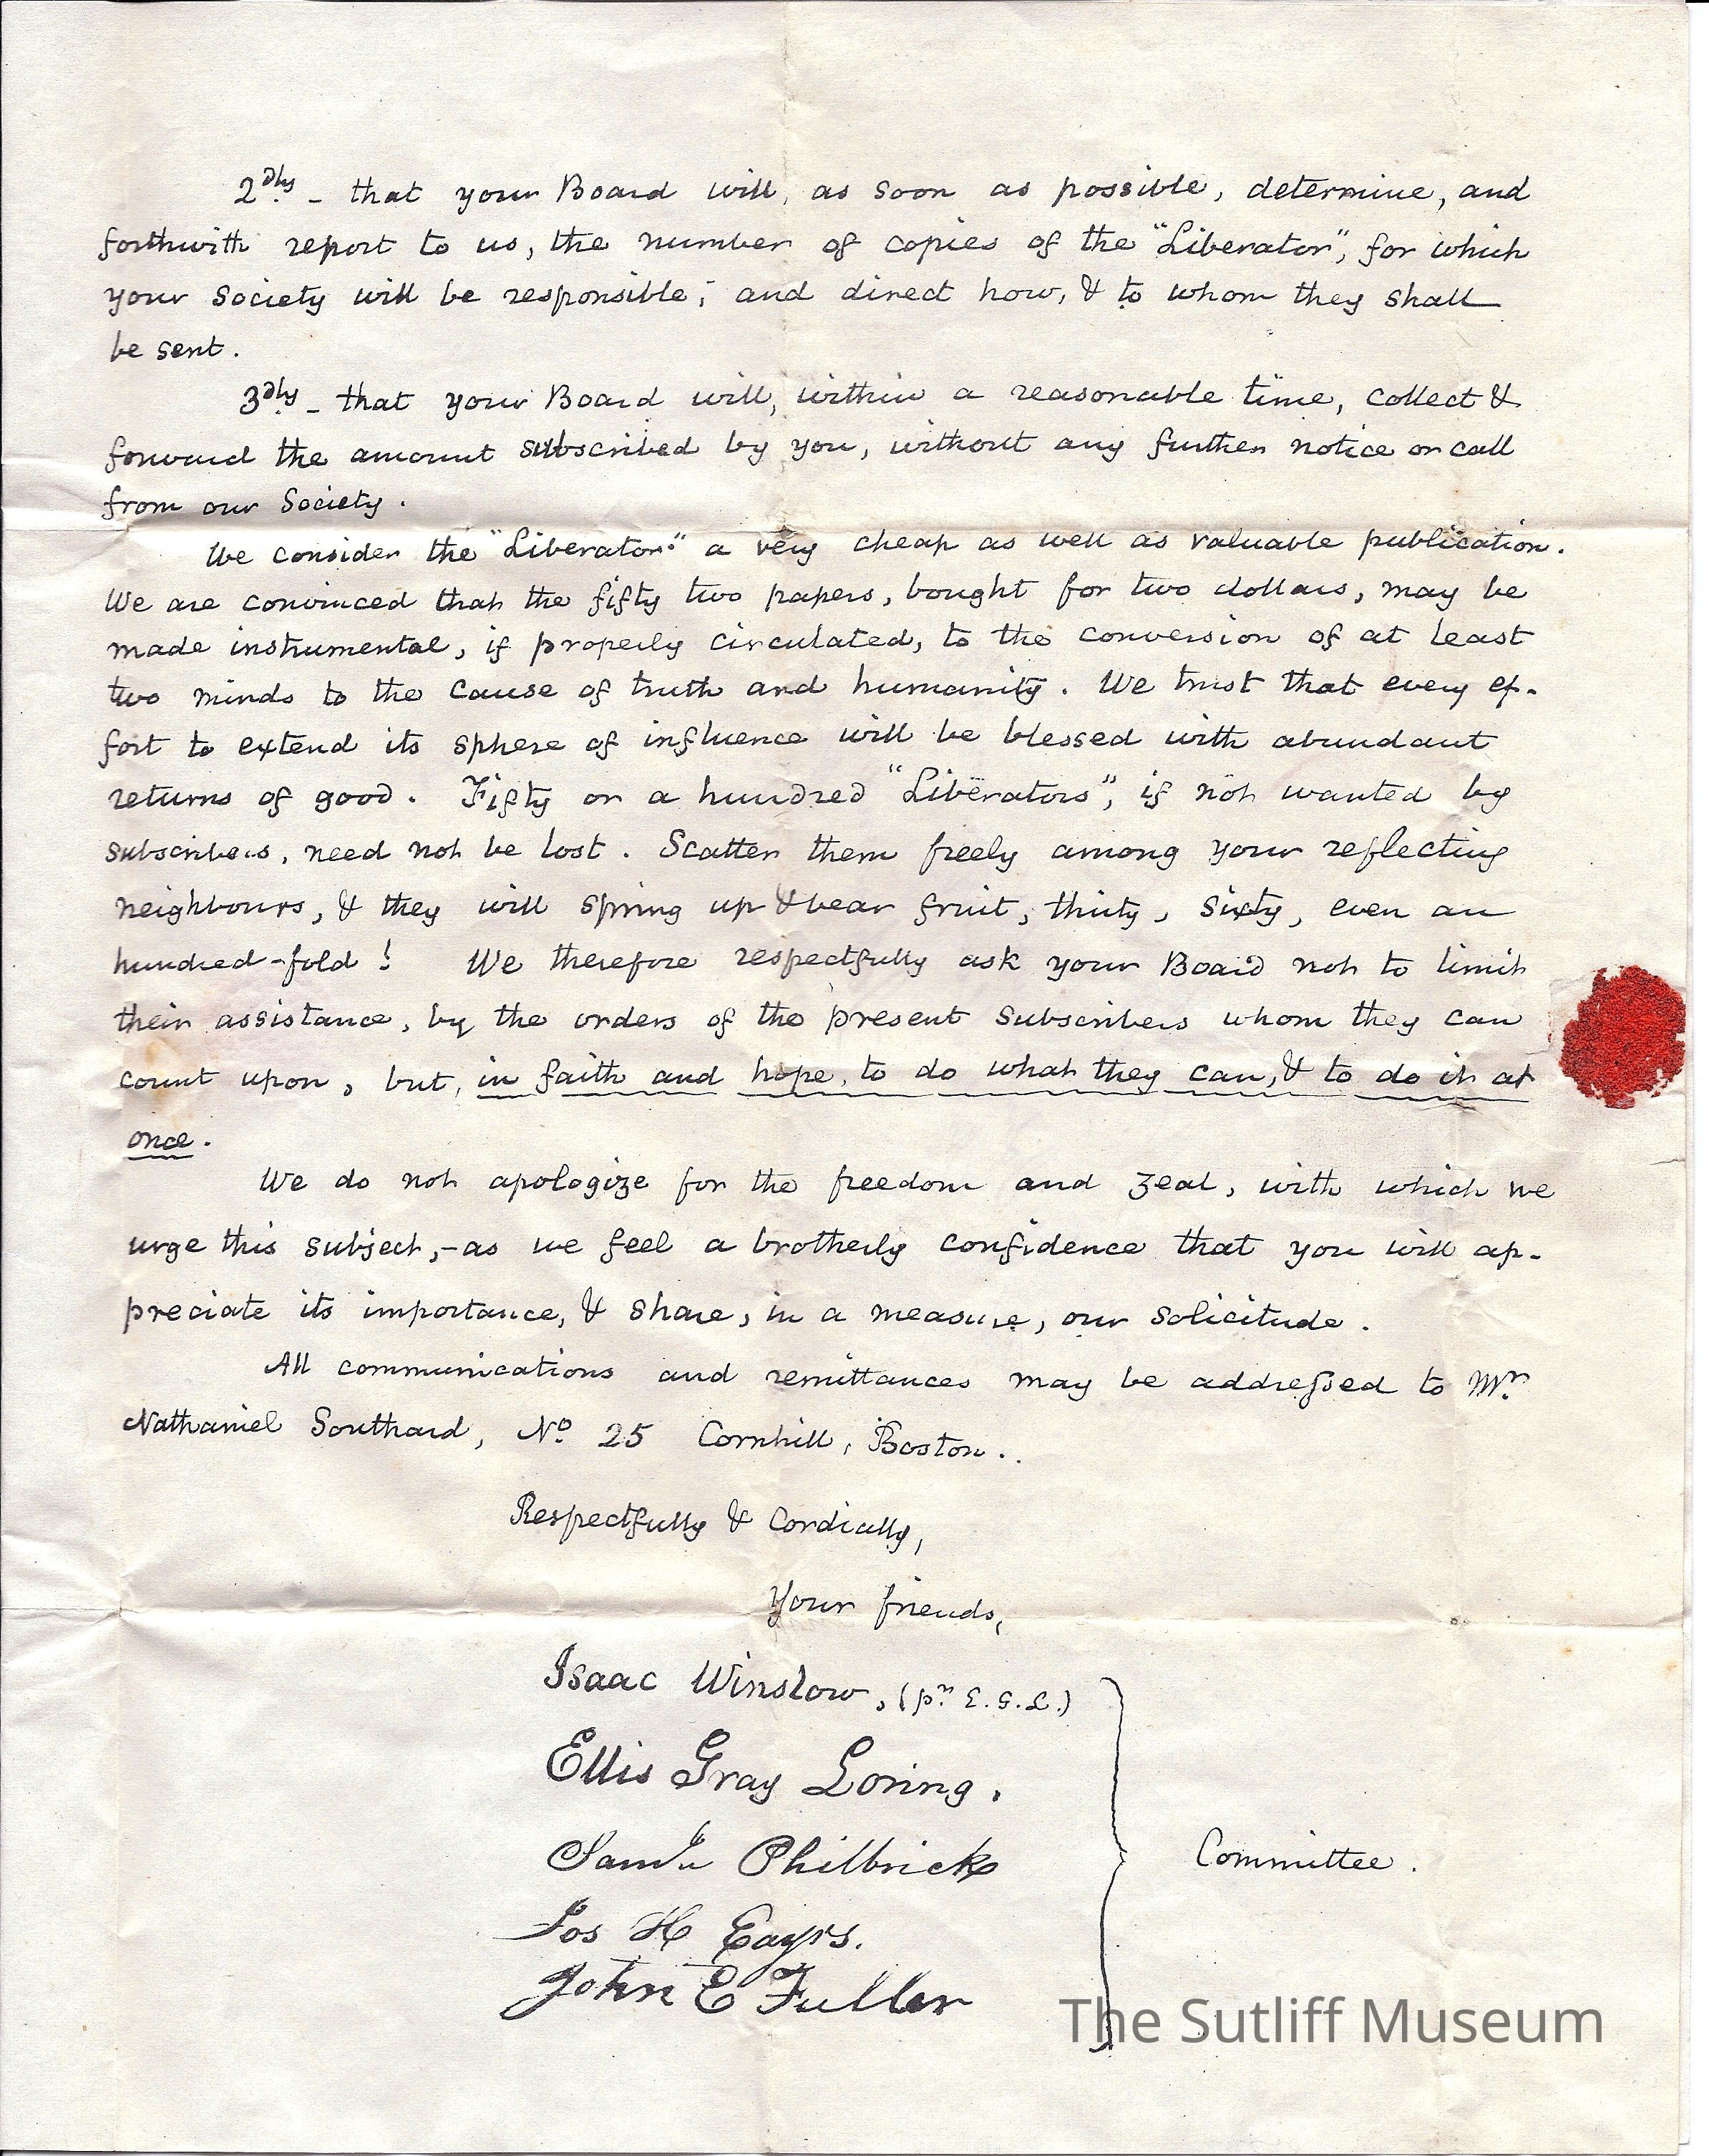 2dly. - that your Board will, as soon as possible, determine, and
forthwith report to us, the number of copies of the "Liberator", for which
your Society will be responsible; and direct how, & to whom they shall
be sent.
3dly. - that your Board will, within a reasonable time, collect &
forward the amount subscribed by you, without any further notice or call
from our Society.
We consider the "Liberator" a very cheap as well as valuable publication.
We are convinced that the fifty two papers, bought for two dollars, may be
made instrumental, if properly circulated, to the conversion of at least
two minds to the cause of truth and humanity. We trust that every ef-
fort to extend its sphere of influence will be blessed with abundant
returns of good. Fifty or a hundred "Liberators", if not wanted by
subscribers, need not be lost. Scatter them freely among your reflecting
neighbours, & they will spring up & bear fruit, thirty, sixty, even an
hundred-fold! We therefore respectfully ask your Board not to limit
their assistance, by the orders of the present subscribers whom they can
count upon, but, in faith and hope, to do what they can, & to do it at
once.
We do not apologize for the freedom and zeal, with which we
urge this subject,- as we feel a brotherly confidence that you will ap-
preciate its importance, & share, in a measure, our solicitude.
All communications and remittances may be addressed to Mr.
Nathaniel Southard, No. 25 Cornhill, Boston.
Respectfully & Cordially,
Your friends,
Isaac Winslow, (pr. E.G.L.)
Ellis Gray Loring.
Saml. Philbrick
Jos H Eayrs.
John E Fuller
Committee.
The Sutliff Museum